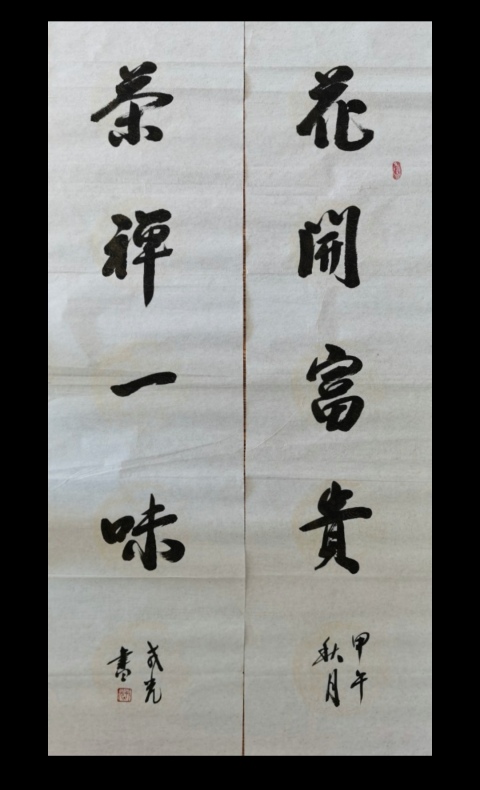 花開富貴
甲午
秋月
茶禪一味
光
書